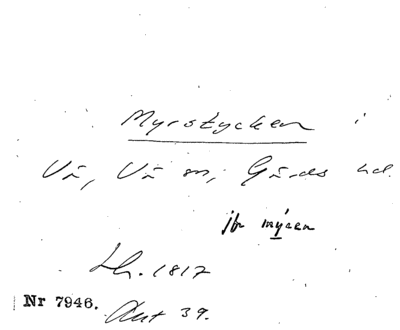 Myrstycken i
Vä, Vä sn, Gärds hd.
jfr mýcen
Lh. 1817
Nr 7946. Akt 39.